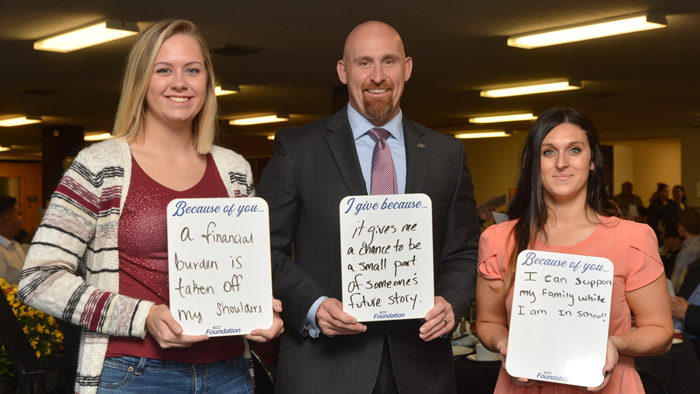 Because of you...
a financial
burden is
taken off
my shoulders.
KCC
Foundation
I give because...
it gives me
a chance to be
a small part
of someone's
future story.
KCC
Foundation
Because of you...
I can support
my family while
I am in school!
KCC
Foundation